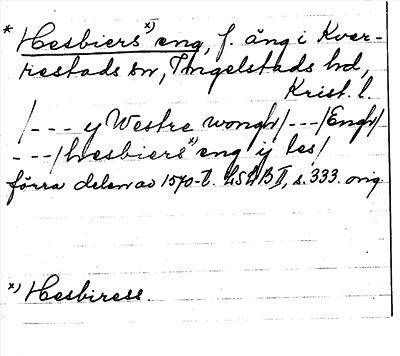 * Hesbiers x) eng, f. äng i Kver-
restads sn, Ingelstads hd,
Krist. l.
/--- y Westre wongh/---/Engh/
---/hesbiers x) eng ij les/
förra delen av 1570-t. LSLB II, s. 333. orig
x) Hesbiress.